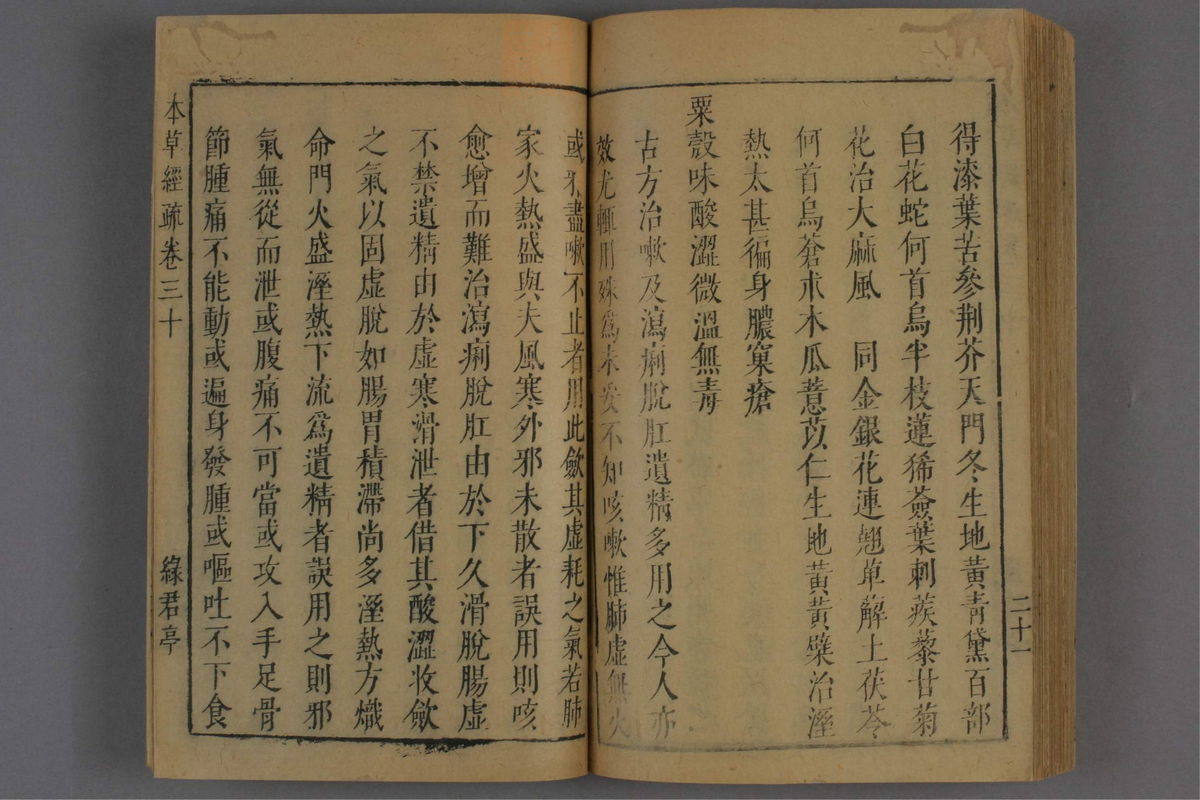 得漆葉苦參荆芥天門冬生地黃青黛百部
白花蛇何首烏半枝蓮豨薟葉刺蒺藜甘菊
花治大麻風　同金銀花連翹萆薢土茯苓
何首烏蒼朮木瓜薏苡仁生地黃黃檗治溼
熱太甚徧身膿窠瘡
粟殼味酸澀微溫無毒
古方治嗽及瀉痢脫肛遺精多用之今人亦
效尤輒用殊為未妥不知咳嗽惟肺虛無火
或邪盡嗽不止者用此歛其虛耗之氣若肺
家火熱盛與夫風寒外邪未散者誤用則咳
愈增而難治瀉痢脫肛由於下久滑脫腸虛
不禁遺精由於虛寒滑泄者借其酸澀收歛
之氣以固虛脫如腸胃積滯尚多溼熱方熾
命門火盛溼熱下流爲遺精者誤用之則邪
氣無從而泄或腹痛不可當或攻入手足骨
節腫痛不能動或遍身發腫或嘔吐不下食
本草經疏卷三十
綠君亭
二十一